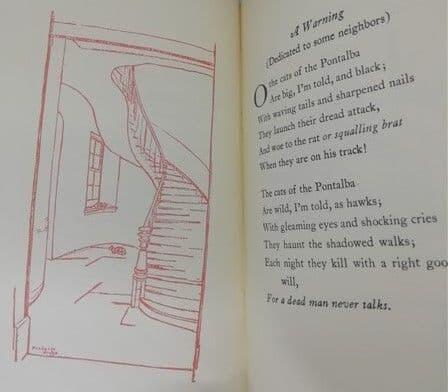 A Warning
(Dedicated to some neighbors)
O the cats of the Pontalba
Are big, I'm told, and black;
With waving tails and sharpened nails
They launch their dread attack,
And woe to the rat or squalling brat
When they are on his track!
The cats of the Pontalba
Are wild, I'm told, as hawks;
With gleaming eyes and shocking cries
They haunt the shadowed walks;
Each night they kill with a right goo
will,
For a dead man never talks.